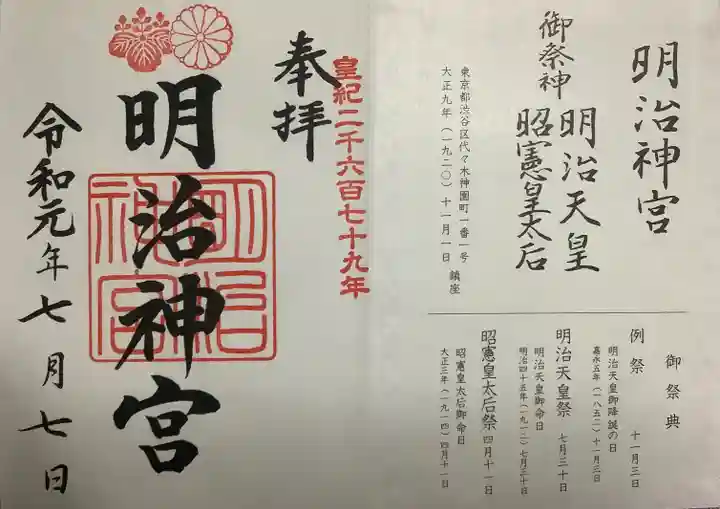 明治神宮
御祭神
明治天皇
昭憲皇太后
東京都渋谷区代々木神園町一番一号
大正九年（一九二〇）十一月一日 鎮座
御祭典
例祭 十一月三日
明治天皇御降誕の日
嘉永五年（一八五二）十一月三日
明治天皇祭 七月三十日
明治天皇御命日
明治四十五年（一九一二）七月三十日
昭憲皇太后祭 四月十一日
昭憲皇太后御命日
大正三年（一九一四）四月十一日
皇紀二千六百七十九年
奉拝
明治神宮
明治神宮
令和元年七月七日